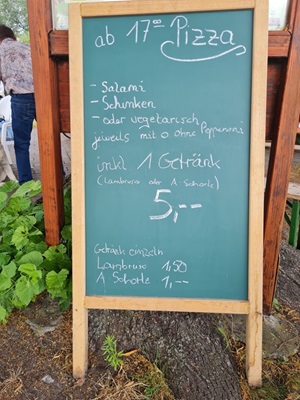 ab 17⁰⁰ Pizza
- Salami
- Schinken
- oder vegetarisch
jeweils mit o ohne Pepperoni
inkl 1 Getränk
(Lambrusco oder A. Schorle)
5,--
Getränk einzeln
Lambrusco 1,50
A Schorle 1,--